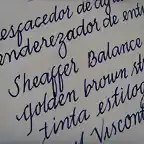 desfacedor de ag
enderezador de entu
Sheaffer Balance
golden brown str
tinta estilog
Viscon